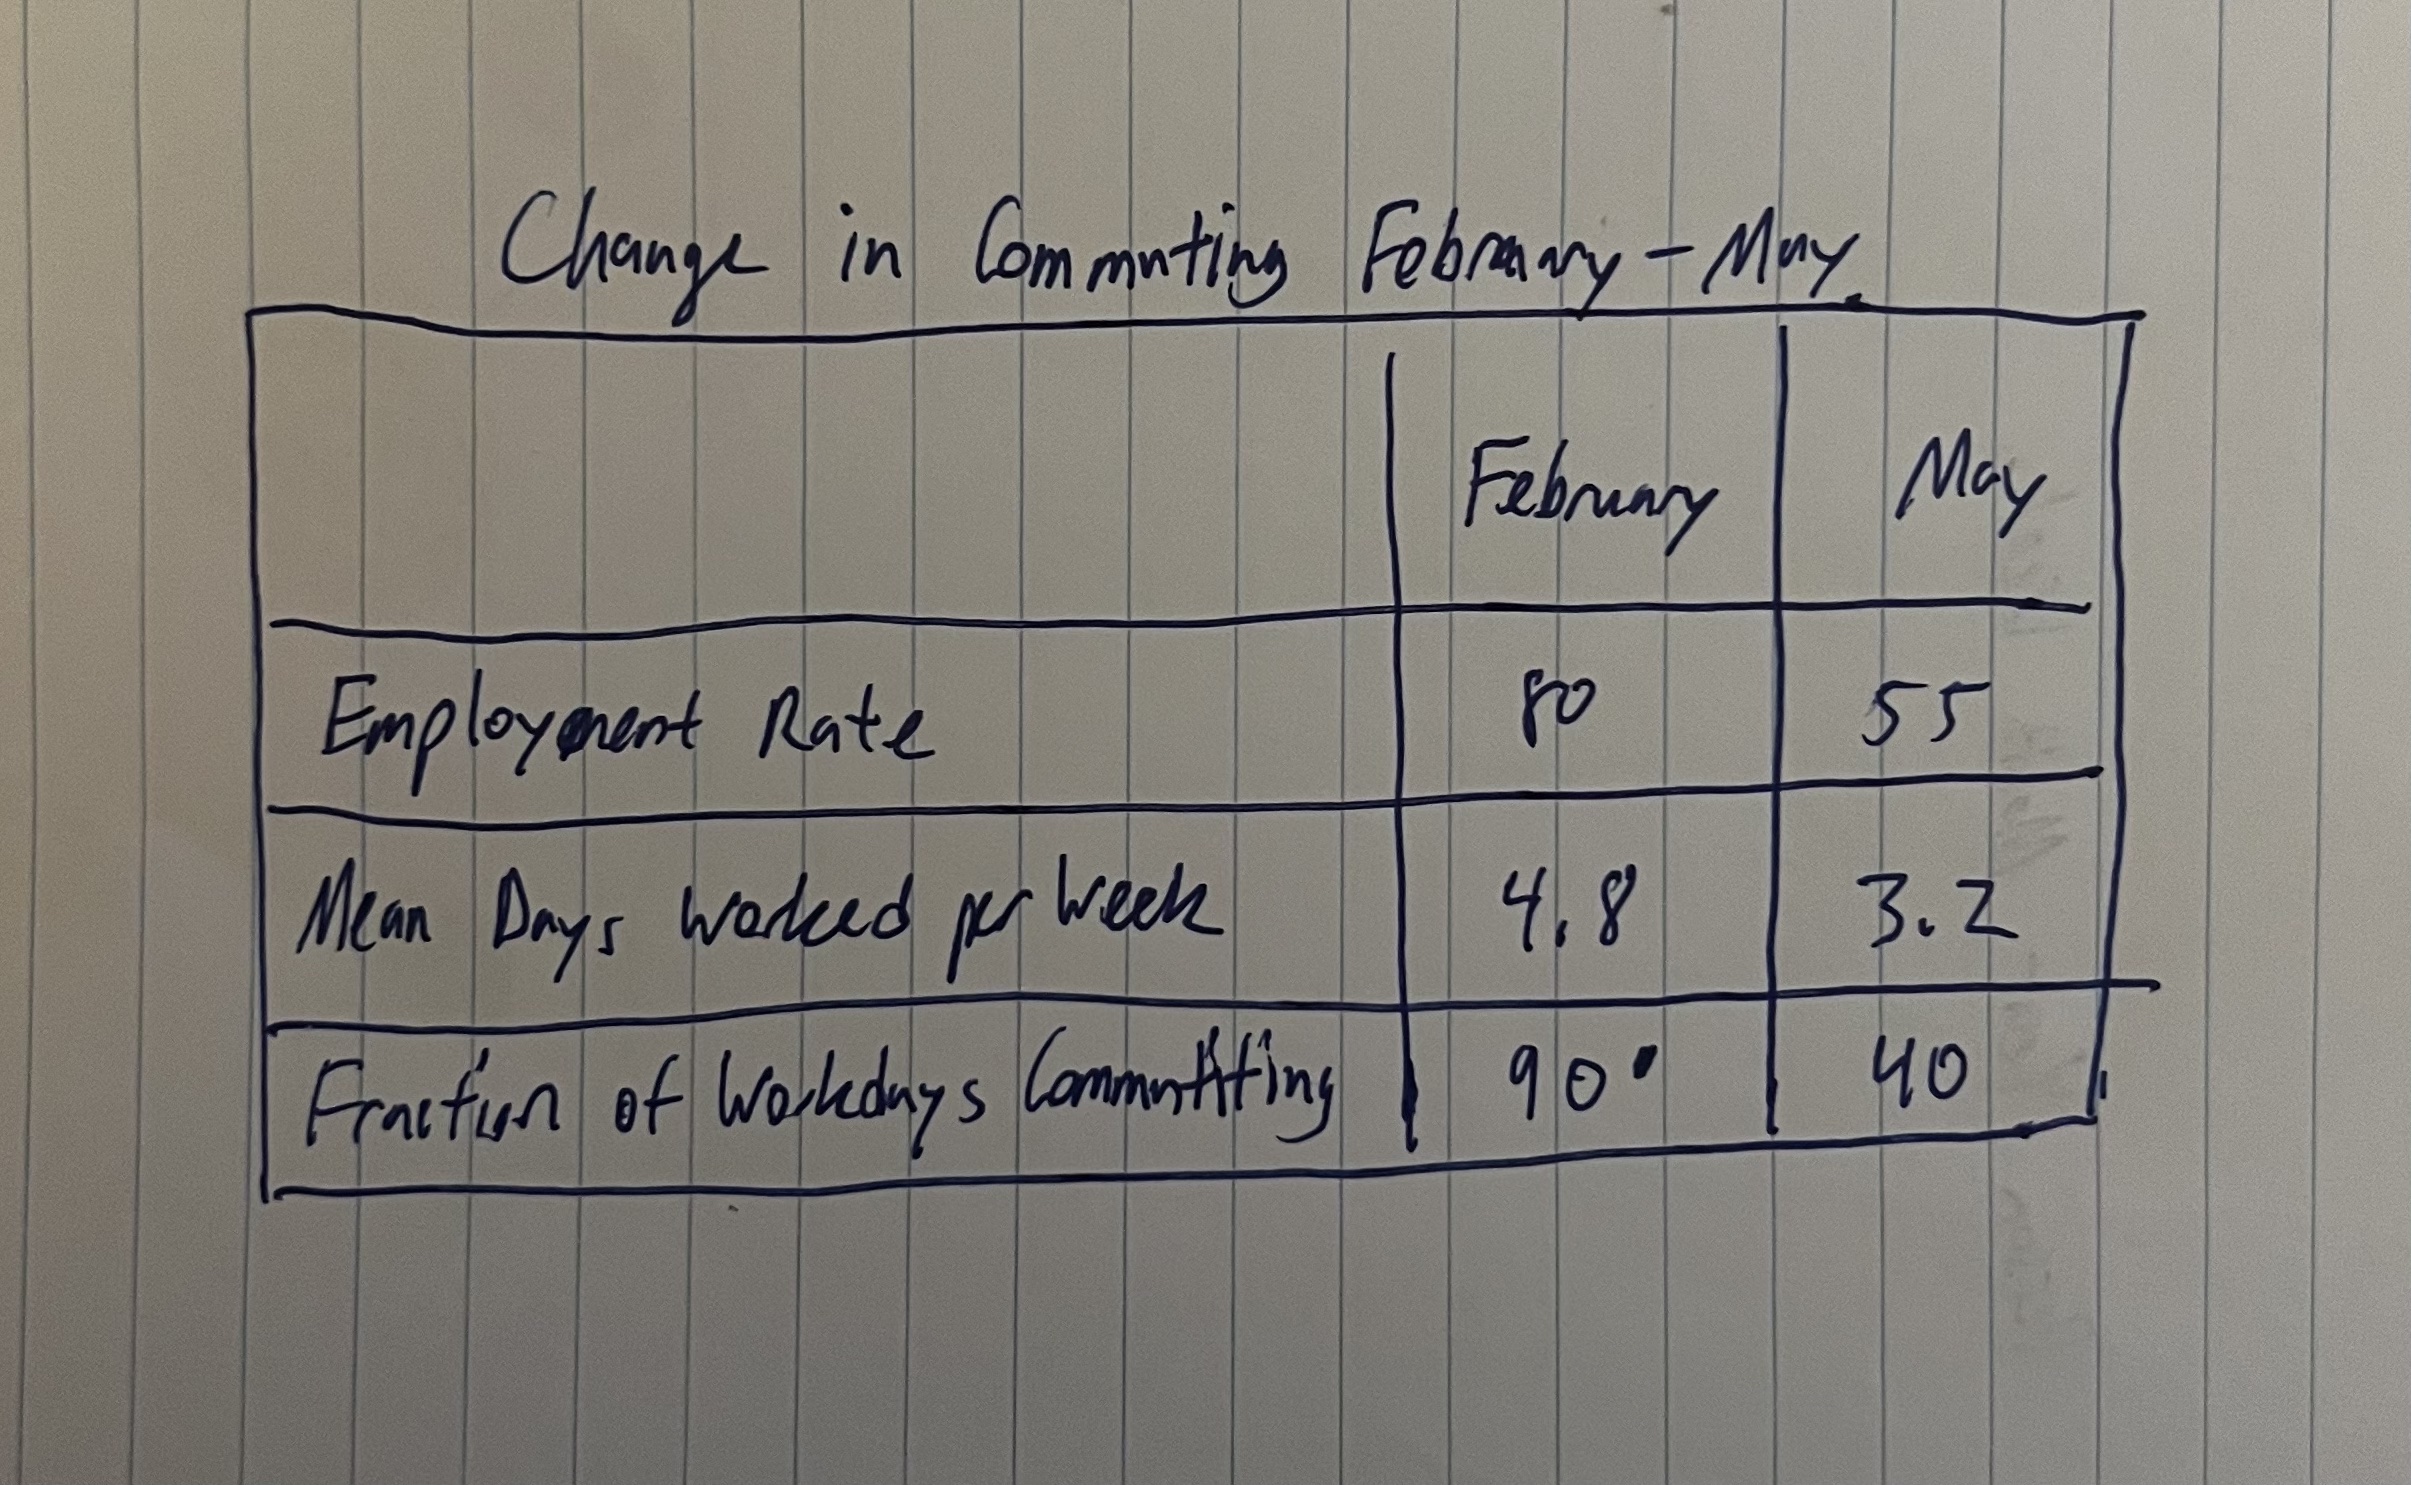 Change in Commuting February - May
February May
Employment Rate 80 55
Mean Days Worked per Week 4.8 3.2
Fraction of Workdays Commuting 90 40